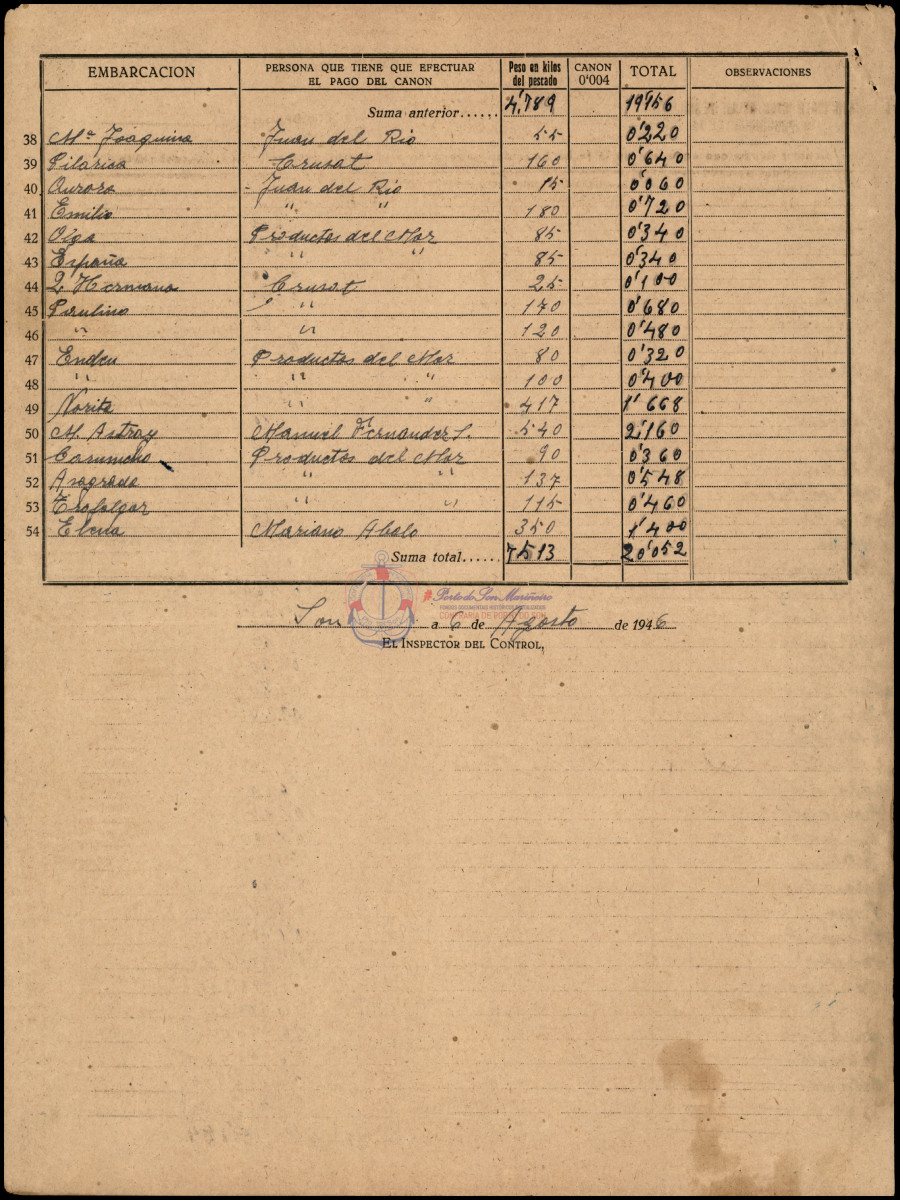 EMBARCACION PERSONA QUE TIENE QUE EFECTUAR EL PAGO DEL CANON Peso en kilos del pescado CANON 0'004 TOTAL OBSERVACIONES
Suma anterior...... 4.789 19'156
38 Mª Joaquina Juan del Rio 55 0'220
39 Pilarica Crusat 160 0'640
40 Aurora - Juan del Rio 15 0'060
41 Emilio " " 180 0'720
42 Olga Productos del Mar 85 0'340
43 España " " 85 0'340
44 2 Hermanos Crusat 25 0'100
45 Paulino " 170 0'680
46 " " 120 0'480
47 Productos del Mar 80 0'320
48 " " " 100 0'400
49 Norita " " 417 1'668
50 M. Astray Manuel Fernandez S. 540 2'160
51 Productos del Mar 90 0'360
52 " " 137 0'548
53 Trafalgar " " 115 0'460
54 Elena Mariano Abalo 350 1'400
Suma total...... 7.513 20'052
Porto do Son Mariñeiro
Son a 6 de Agosto de 1946
EL INSPECTOR DEL CONTROL,